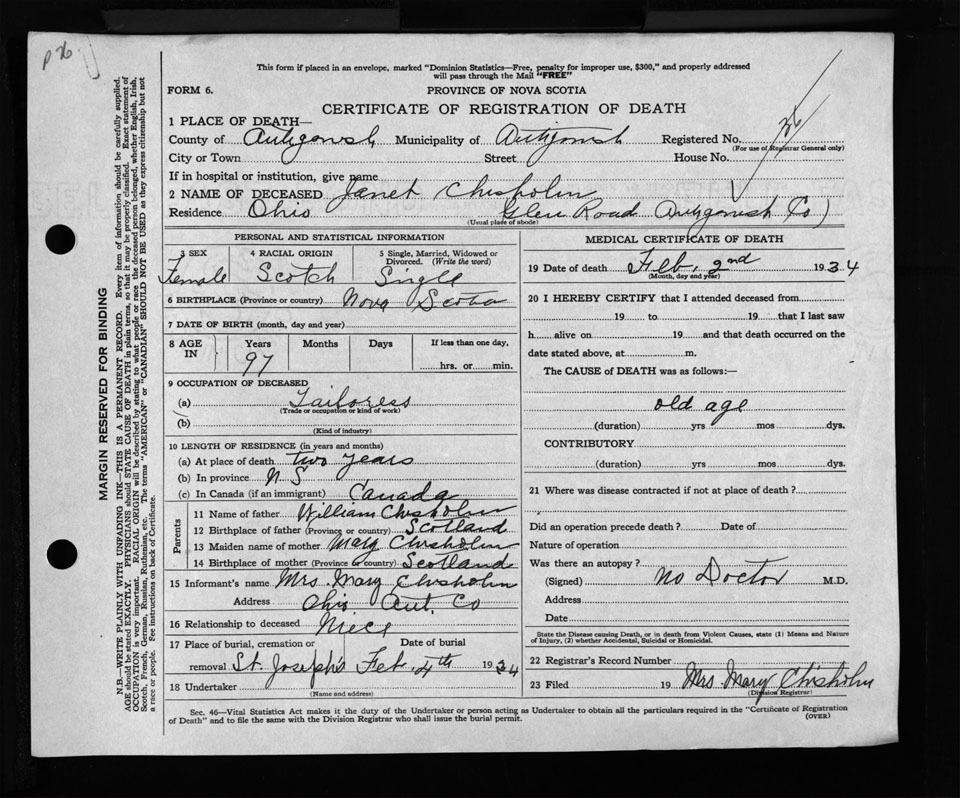 P 26
This form if placed in an envelope, marked "Dominion Statistics—Free, penalty for improper use, $300," and properly addressed
will pass through the Mail "FREE"
FORM 6.
PROVINCE OF NOVA SCOTIA
CERTIFICATE OF REGISTRATION OF DEATH
1 PLACE OF DEATH—
County of Antigonish Municipality of Antigonish Registered No. 26
(For use of Registrar General only)
City or Town Street House No.
If in hospital or institution, give name
2 NAME OF DECEASED Janet Chisholm
Residence Ohio Glen Road Antigonish Co)
(Usual place of abode)
PERSONAL AND STATISTICAL INFORMATION
3 SEX 4 RACIAL ORIGIN 5 Single, Married, Widowed or
Divorced. (Write the word)
Female Scotch Single
6 BIRTHPLACE (Province or country) Nova Scotia
7 DATE OF BIRTH (month, day and year)
8 AGE IN Years Months Days If less than one day,
97 hrs. or min.
9 OCCUPATION OF DECEASED
(a) Tailoress
(Trade or occupation or kind of work)
(b)
(Kind of industry)
10 LENGTH OF RESIDENCE (in years and months)
(a) At place of death two years
(b) In province N S
(c) In Canada (if an immigrant) Canada
Parents
11 Name of father William Chisholm
12 Birthplace of father (Province or country) Scotland
13 Maiden name of mother Mary Chisholm
14 Birthplace of mother (Province or country) Scotland
15 Informant's name Mrs. Mary Chisholm
Address Ohio Ant. Co
16 Relationship to deceased Niece
17 Place of burial, cremation or Date of burial
removal St. Joseph's Feb. 4th 1934
18 Undertaker
(Name and address)
MEDICAL CERTIFICATE OF DEATH
19 Date of death Feb, 2nd 1934
(Month, day and year)
20 I HEREBY CERTIFY that I attended deceased from
19 to 19 that I last saw
h alive on 19 and that death occurred on the
date stated above, at m.
The CAUSE of DEATH was as follows:—
old age
(duration) yrs mos dys.
CONTRIBUTORY
(duration) yrs mos dys.
21 Where was disease contracted if not at place of death?
Did an operation precede death? Date of
Nature of operation
Was there an autopsy?
(Signed) No Doctor M.D.
Address
Date
State the Disease causing Death, or in death from Violent Causes, state (1) Means and Nature
of Injury, (2) whether Accidental, Suicidal or Homicidal.
22 Registrar's Record Number
23 Filed 19 Mrs Mary Chisholm
(Division Registrar)
Sec. 46—Vital Statistics Act makes it the duty of the Undertaker or person acting as Undertaker to obtain all the particulars required in the "Certificate of Registration
of Death" and to file the same with the Division Registrar who shall issue the burial permit.
(OVER)
MARGIN RESERVED FOR BINDING
N.B.—WRITE PLAINLY WITH UNFADING INK—THIS IS A PERMANENT RECORD. Every item of information should be carefully supplied.
AGE should be stated EXACTLY. PHYSICIANS should STATE CAUSE OF DEATH in plain terms, so that it may be properly classified. Exact statement of
OCCUPATION is very important. RACIAL ORIGIN will be described by stating to what people or race the deceased person belonged, whether English, Irish,
Scotch, French, German, Russian, Ruthenian, etc. The terms "AMERICAN" or "CANADIAN" SHOULD NOT BE USED as they express citizenship but not
a race or people. See instructions on back of Certificate.